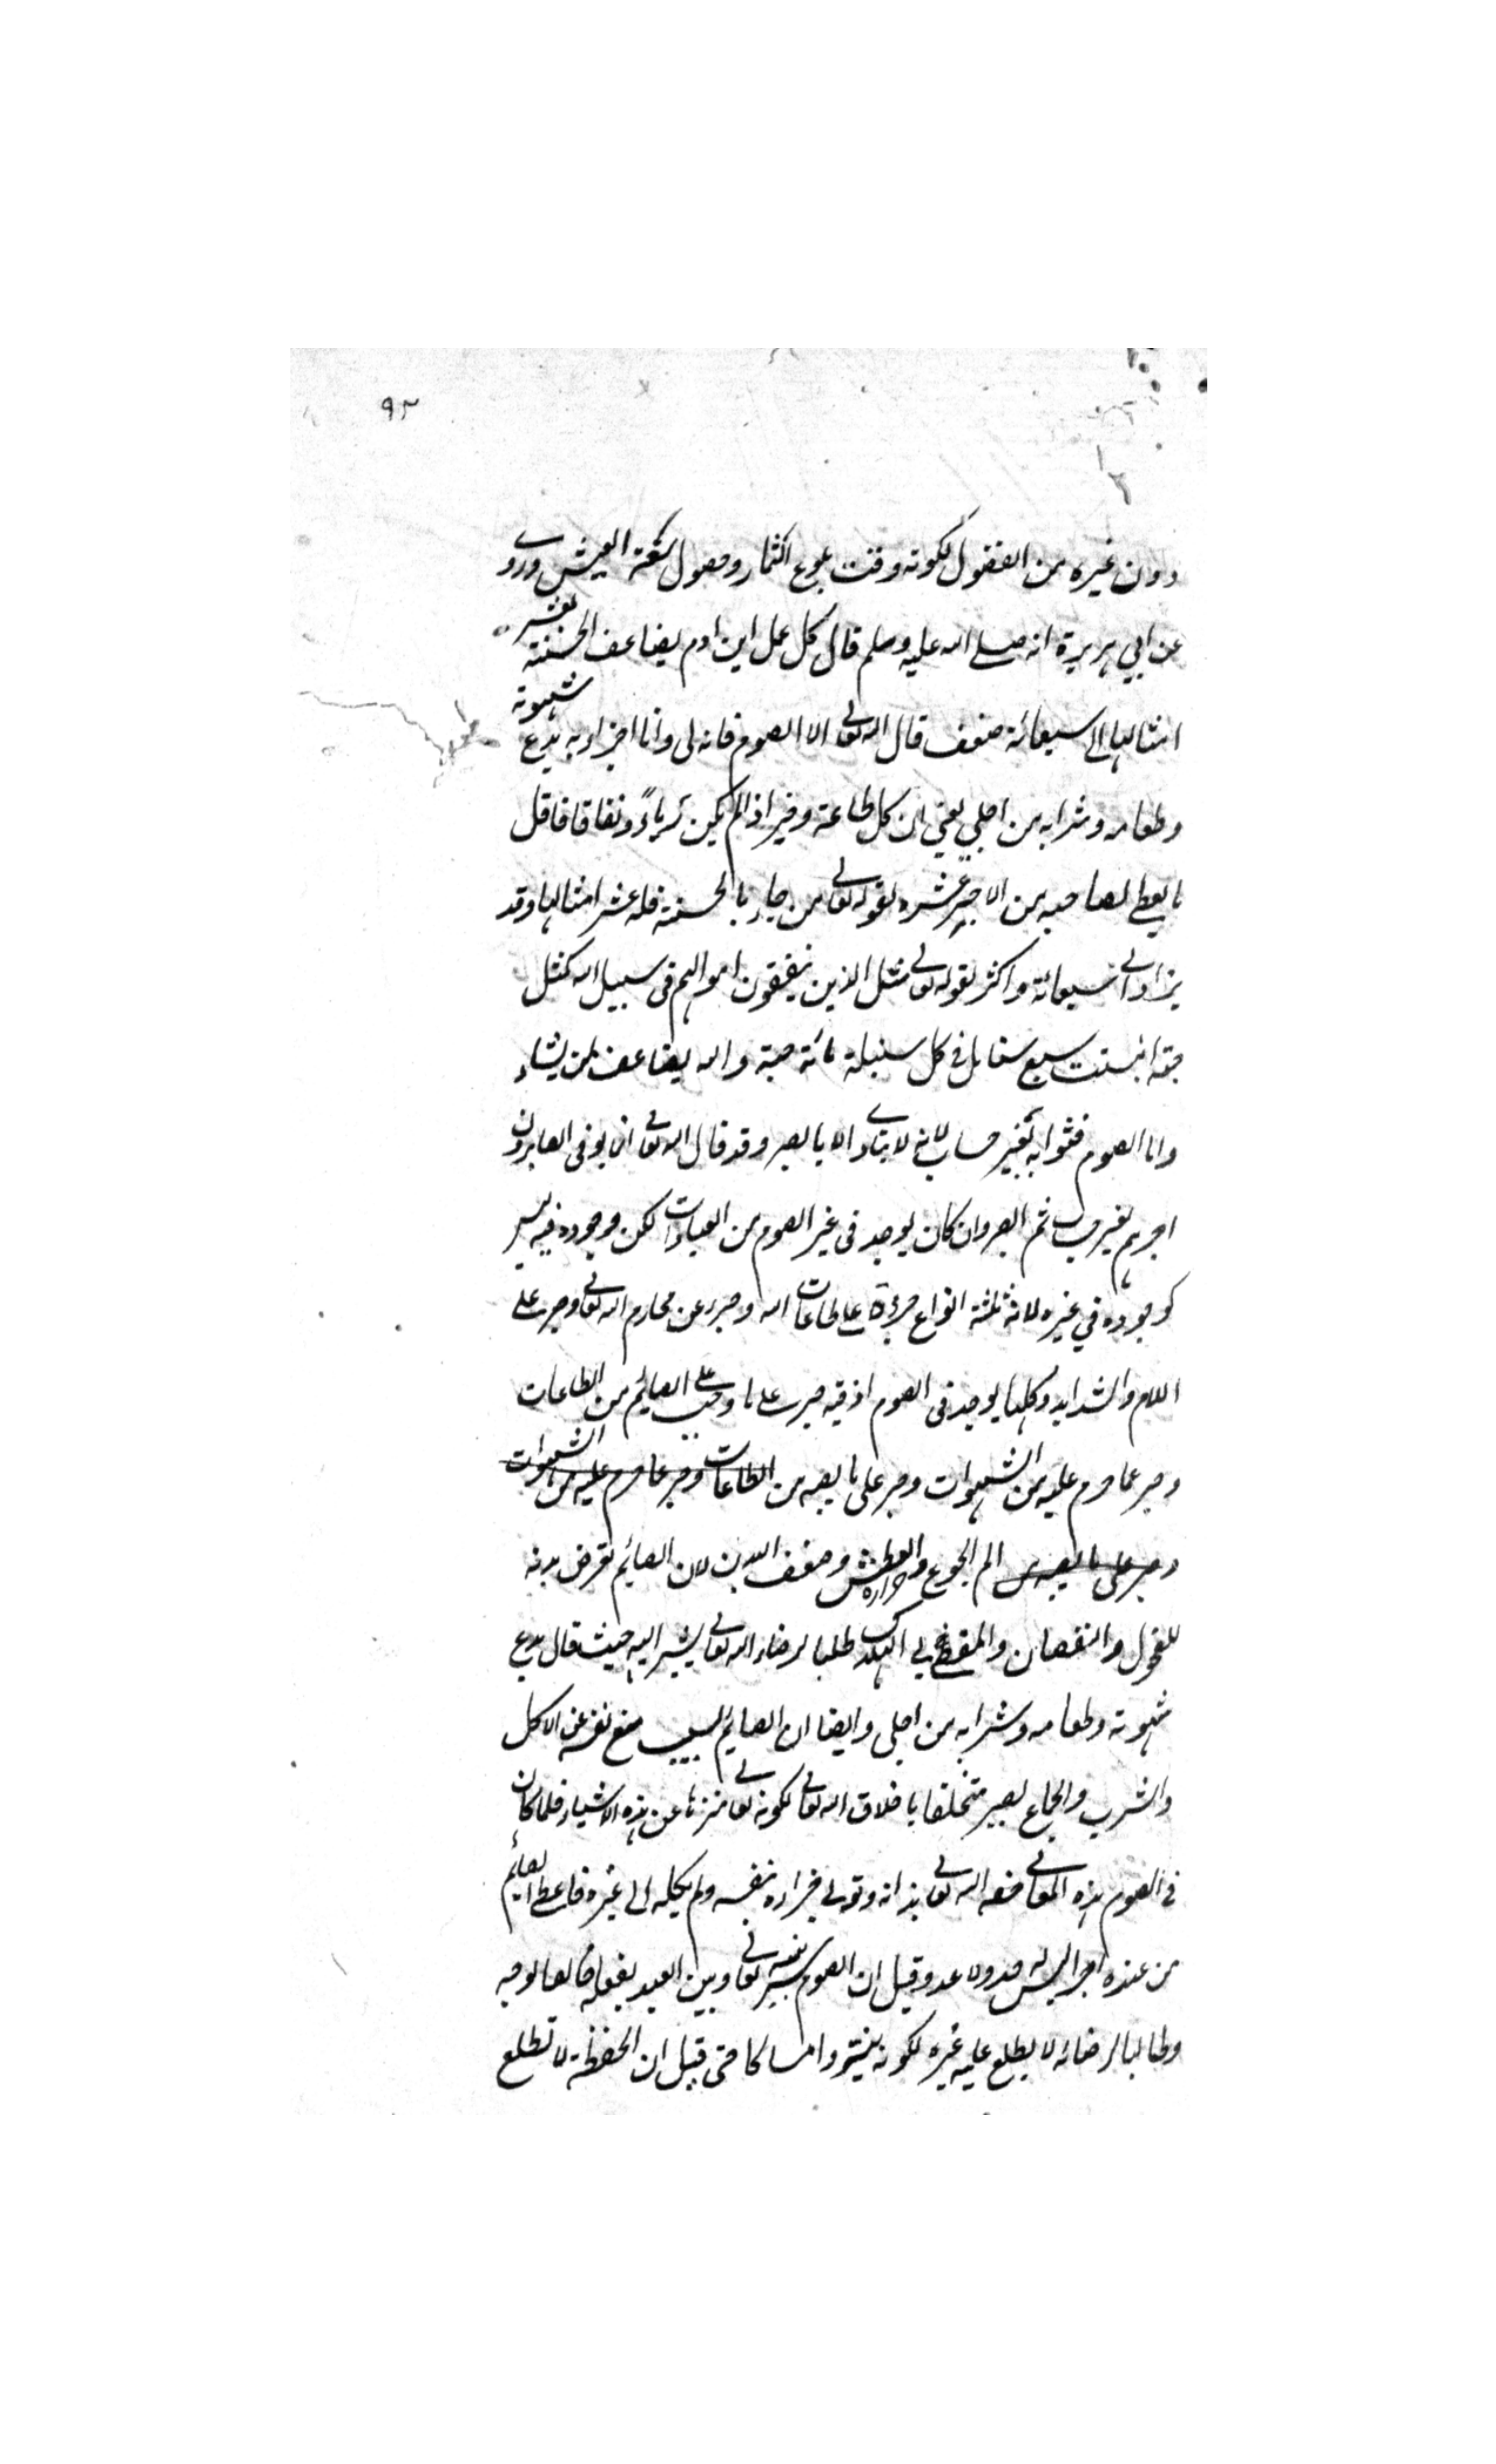 ٩٣
دون غيره من الفصول لكونه وقت بلوغ الثمار وحصول سعة العيش وروى
عن ابي هريرة انه صلى الله عليه وسلم قال كل عمل ابن ادم يضاعف الحسنة بعشر
امثالها الى سبعمائة ضعف قال الله تعالى الا الصوم فانه لى وانا اجزاء به يدع شهوته
وطعامه وشرابه من اجلي يعني ان كل طاعة وخير اذا لم يكن رياءً ونفاقا فاقل
ما يعطى لصاحبه من الاجر عشره لقوله تعالى من جاء بالحسنة فله عشر امثالها وقد
يزاد الى سبعمائة واكثر لقوله تعالى مثل الذين ينفقون اموالهم فى سبيل الله كمثل
حبة انبتت سبع سنابل في كل سنبلة مائة حبة والله يضاعف لمن يشاء
واما الصوم فثوابه بغير حساب لانه لا يتادى الا بالصبر وقد قال الله تعالى انما يوفى الصابرون
اجرهم بغير حساب ثم الصبر وان كان يوجد فى غير الصوم من العبادات لكن وجوده فيه ليس
كوجوده في غيره لانه ثلثة انواع صبر على طاعات الله وصبر عن محارم الله تعالى وصبر على
الالام والشدايد وكلها يوجد فى الصوم اذ فيه صبر على ما وجب على الصايم من الطاعات
وصبر عما حرم عليه من الشهوات وصبر على ما يصيبه من الطاعات وصبر عما حرم عليه من الشهوات
وصبر على ما يصيبه من الم الجوع وحرارة العطش وضعف البدن لان الصائم يعرض بدنه
للنحول والنقصان والمفضي الى الهلاك طلبا لرضاء الله تعالى يشير اليه حيث قال يدع
شهوته وطعامه وشرابه من اجلى وايضا ان الصايم بسبب منع نفسه عن الاكل
والشرب والجماع يصير متخلقا باخلاق الله تعالى لكونه تعالى منزها عن هذه الاشياء فلما كان
فى الصوم هذه المعانى خصه الله تعالى بذاته وتولى جزاءه بنفسه ولم يكله الى غيره فاعطا الصائم
من عنده اجرا ليس له حد ولا عد وقيل ان الصوم سر بينه تعالى وبين العبد يفعله خالصا لوجهه
وطالبا لرضائه لا يطلع عليه غيره لكونه بنية وامساكا حتى قيل ان الحفظة لا تطلع